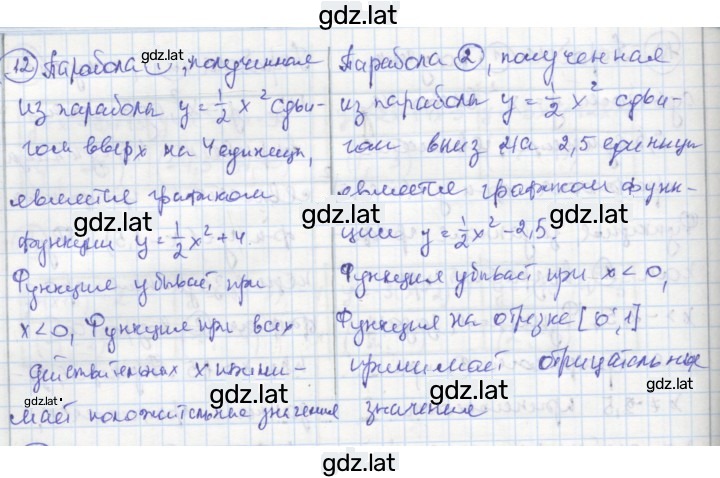 gdz.lat
12 Парабола 1, полученная
из парабола y = 1/2 x² сдви-
гом вверх на 4 единицы,
является графиком
gdz.lat
функции y = 1/2 x² + 4.
Функция убывает при
x < 0, Функция при всех
действительных x прини-
мает положительные значения
gdz.lat
Парабола 2, полученная
из парабола y = 1/2 x² сдви-
гом вниз на 2,5 единицы
является графиком функ-
gdz.lat
ции y = 1/2 x² - 2,5.
Функция убывает при x < 0,
gdz.lat
Функция на отрезке [0; 1]
принимает отрицательные
gdz.lat
значения
gdz.lat
gdz.lat
gdz.lat